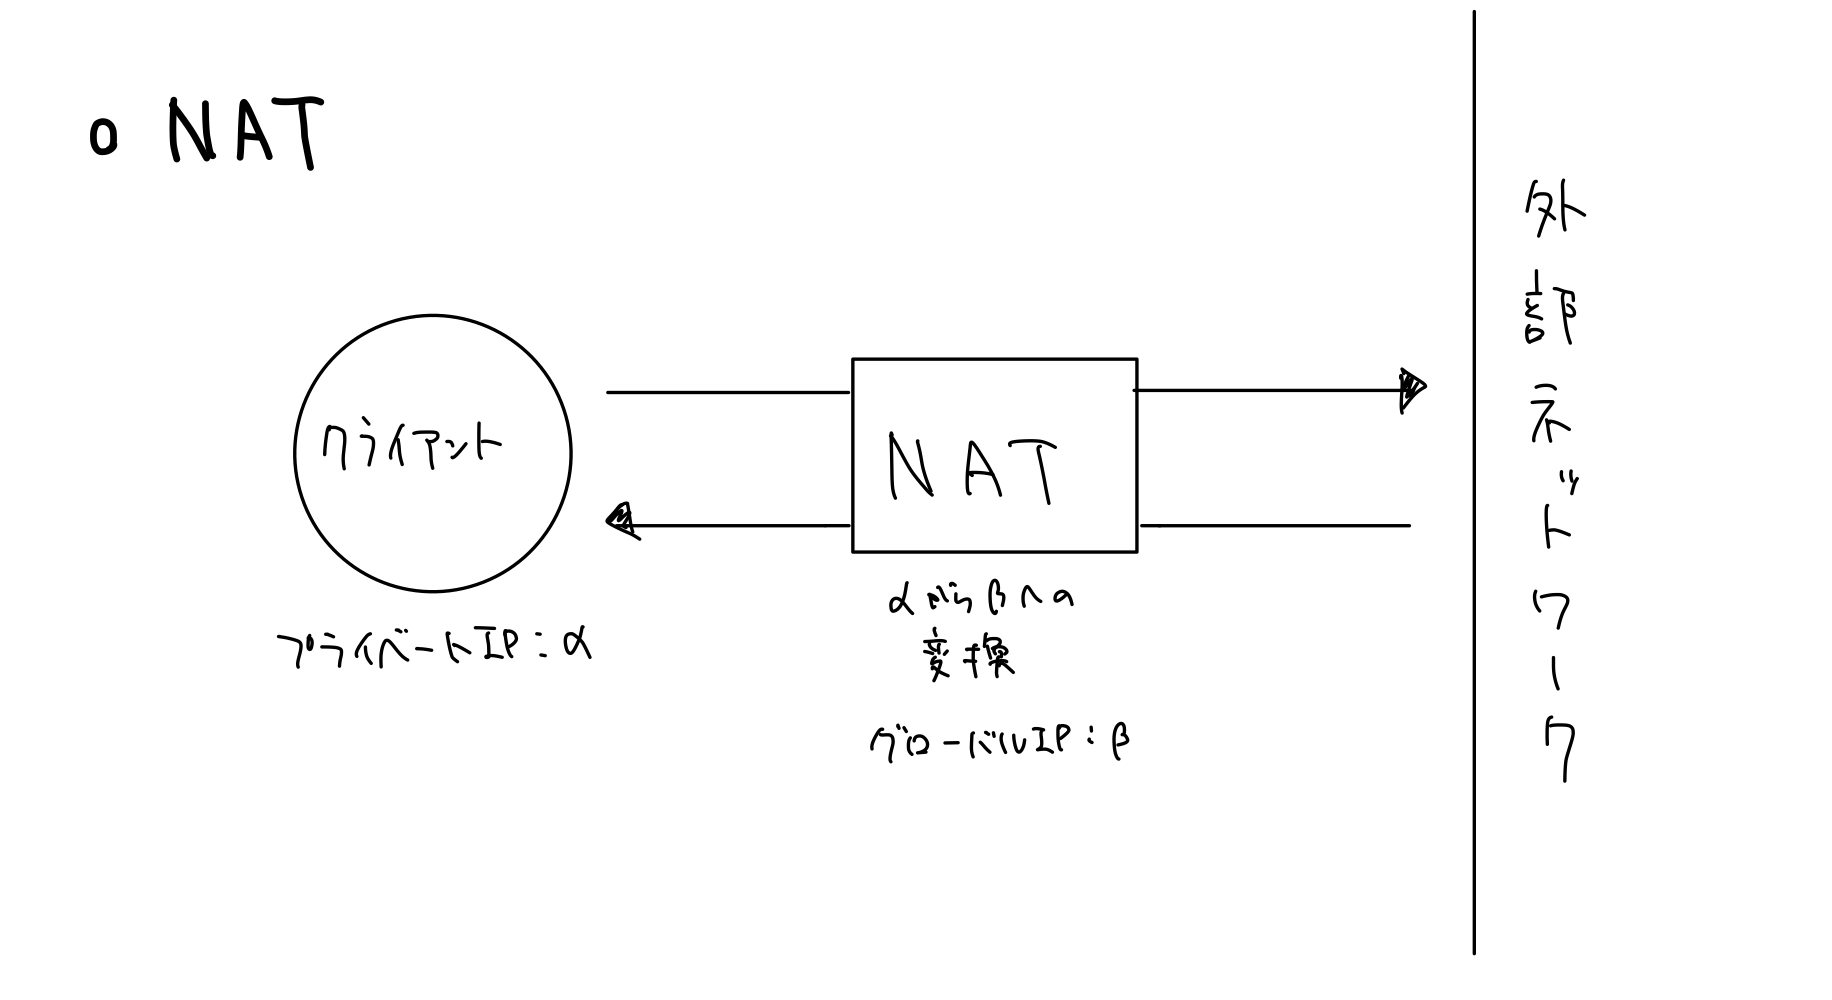 o NAT
クライアント
プライベートIP:α
NAT
αからβへの
変換
グローバルIP:β
外部ネットワーク